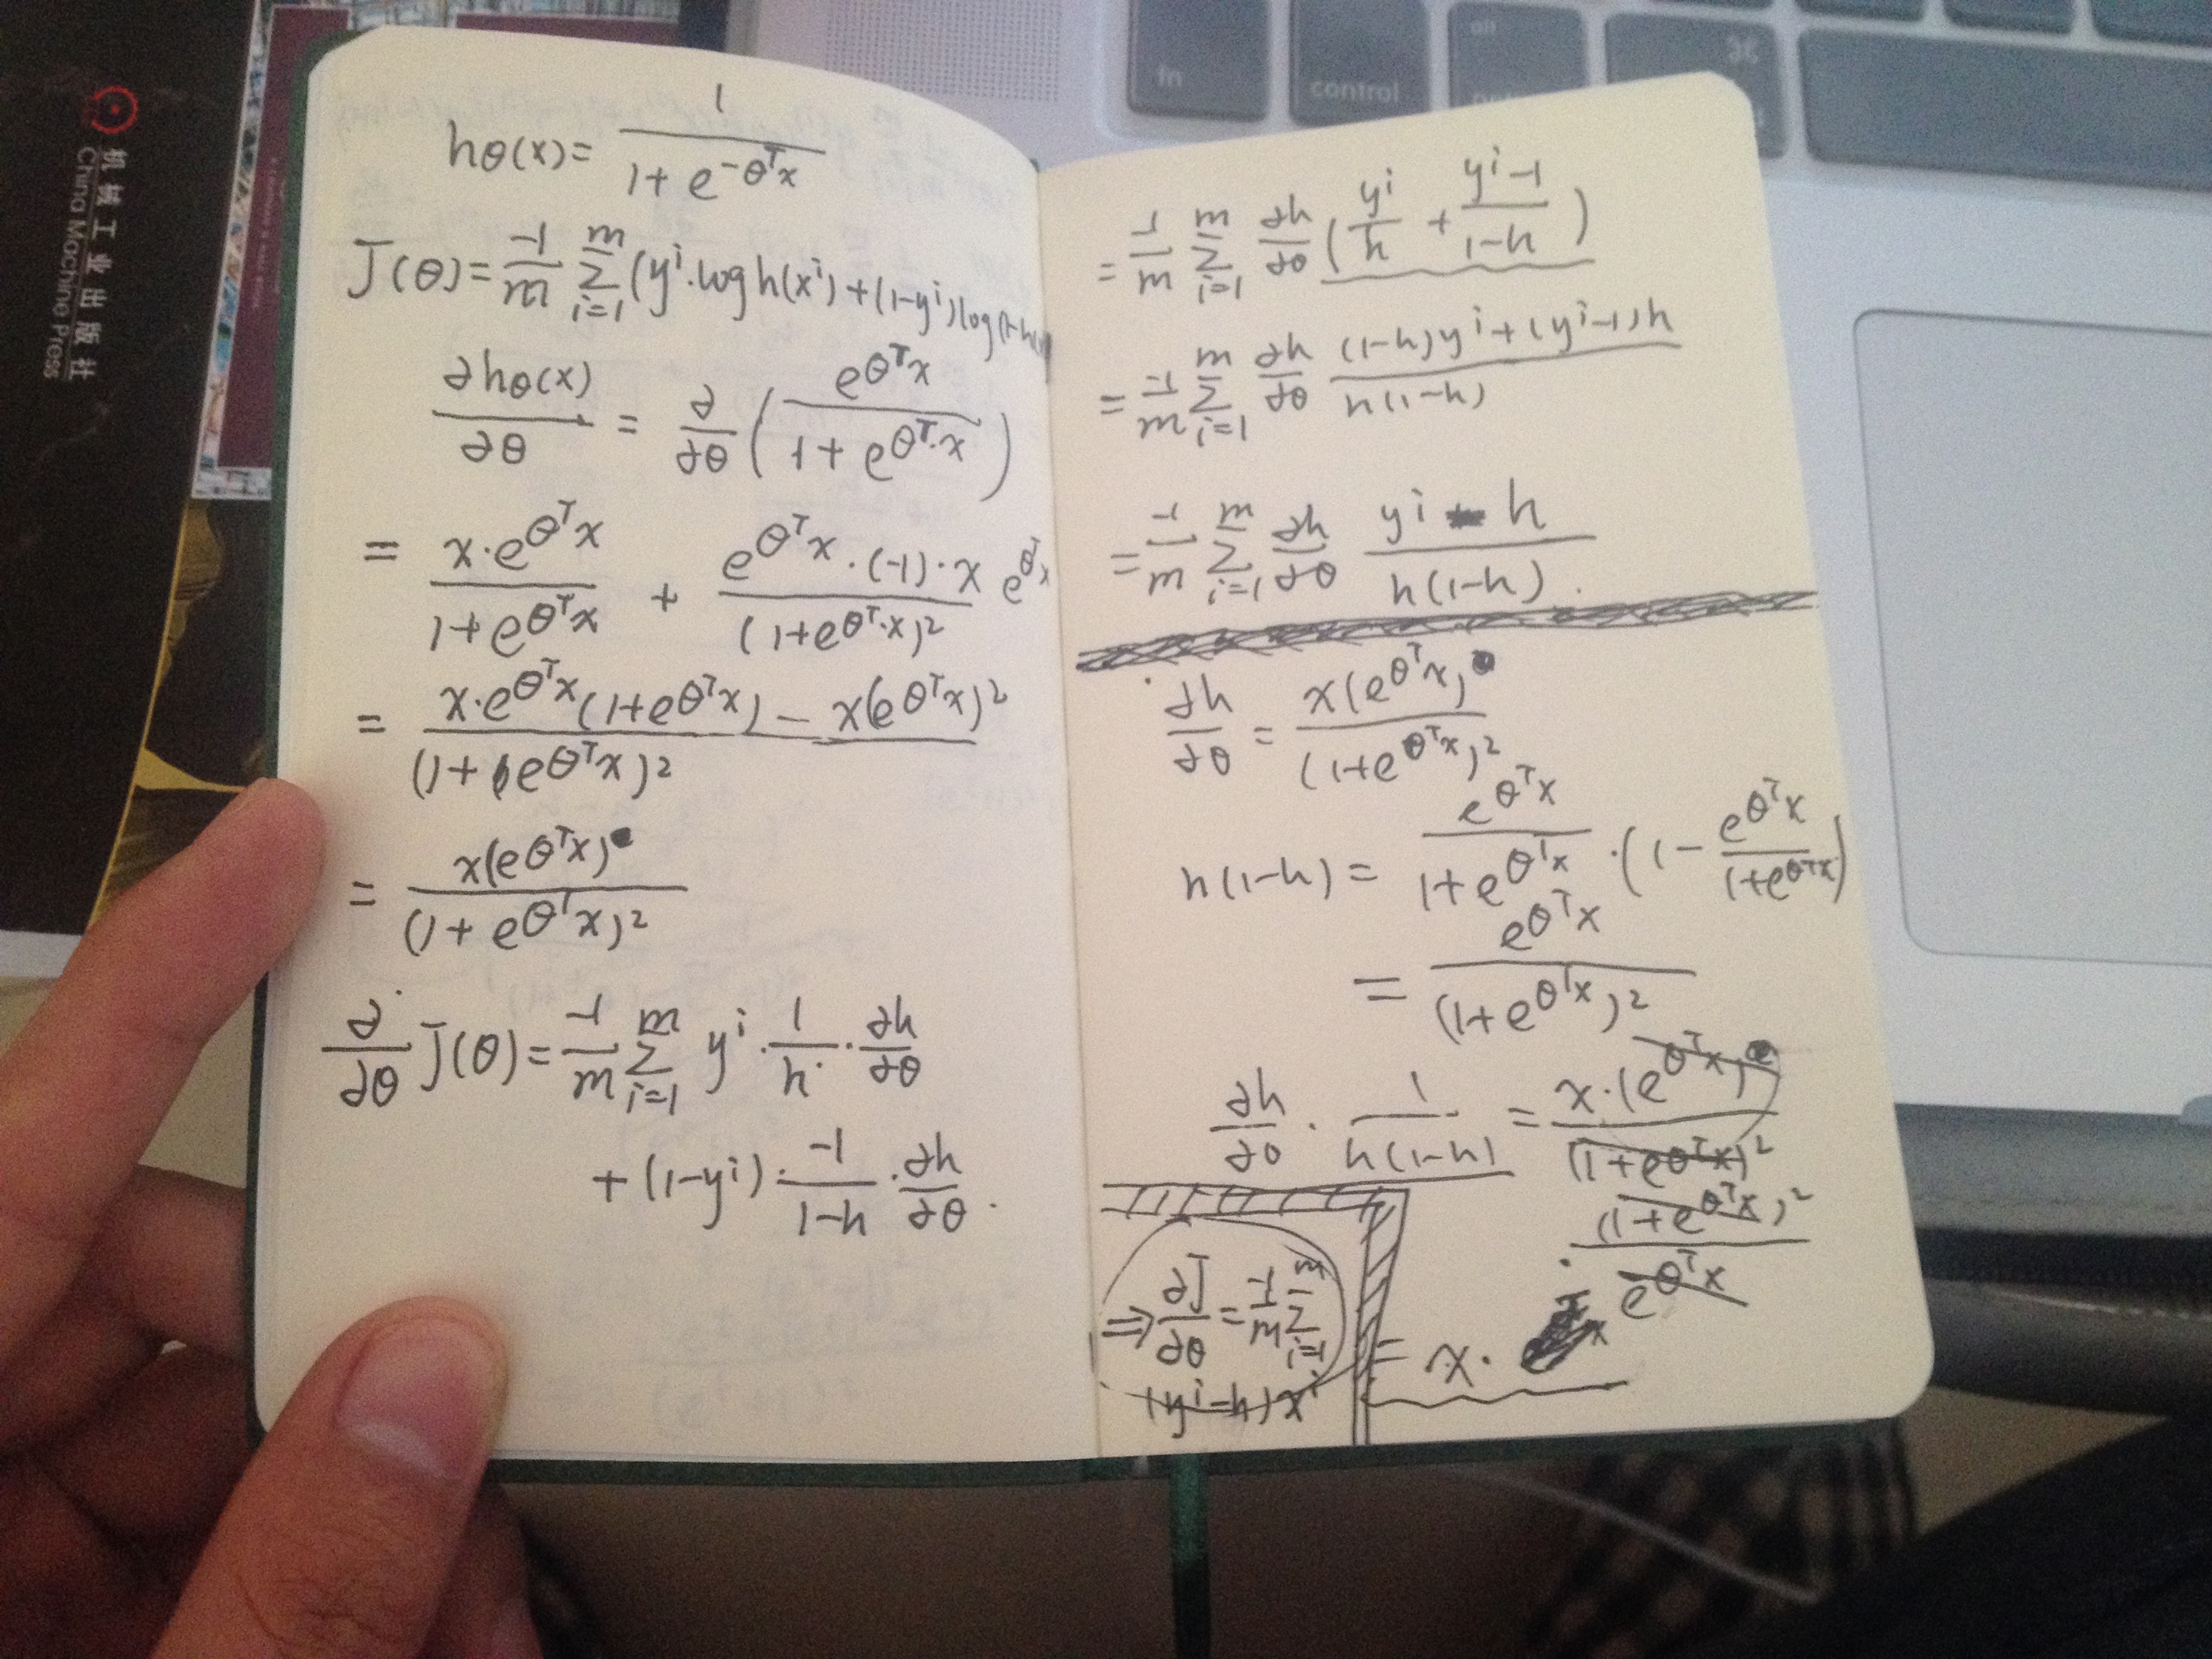 机械工业出版社
China Machine Press
fn
control
alt
⌘
hθ(x) = 1 / (1 + e^{-θ^T x})
J(θ) = -1/m Σ_{i=1}^{m} (y^i · log h(x^i) + (1-y^i) log(1-h(x
∂hθ(x)/∂θ = ∂/∂θ ( e^{θ^T x} / (1 + e^{θ^T·x}) )
= x·e^{θ^T x} / (1+e^{θ^T x}) + e^{θ^T x}·(-1)·x e^{θ^T x} / (1+e^{θ^T·x})^2
= x·e^{θ^T x}(1+e^{θ^T x}) - x(e^{θ^T x})^2 / (1+e^{θ^T x})^2
= x(e^{θ^T x}) / (1+e^{θ^T x})^2
∂/∂θ J(θ) = -1/m Σ_{i=1}^{m} y^i · 1/h · ∂h/∂θ
+ (1-y^i) · -1/(1-h) · ∂h/∂θ .
= -1/m Σ_{i=1}^{m} ∂h/∂θ ( y^i/h + (y^i-1)/(1-h) )
= -1/m Σ_{i=1}^{m} ∂h/∂θ ((1-h)y^i + (y^i-1)h) / (h(1-h))
= -1/m Σ_{i=1}^{m} ∂h/∂θ (y^i - h) / (h(1-h)) .
∂h/∂θ = x(e^{θ^T x}) / (1+e^{θ^T x})^2
h(1-h) = e^{θ^T x} / (1+e^{θ^T x}) · (1 - e^{θ^T x} / (1+e^{θ^T x}))
= e^{θ^T x} / (1+e^{θ^T x})^2
∂h/∂θ · 1/(h(1-h)) = x·(e^{θ^T x}) / (1+e^{θ^T x})^2
· (1+e^{θ^T x})^2 / e^{θ^T x}
= x ·
⇒ ∂J/∂θ = -1/m Σ_{i=1}^{m}
(y^i-h) x^i